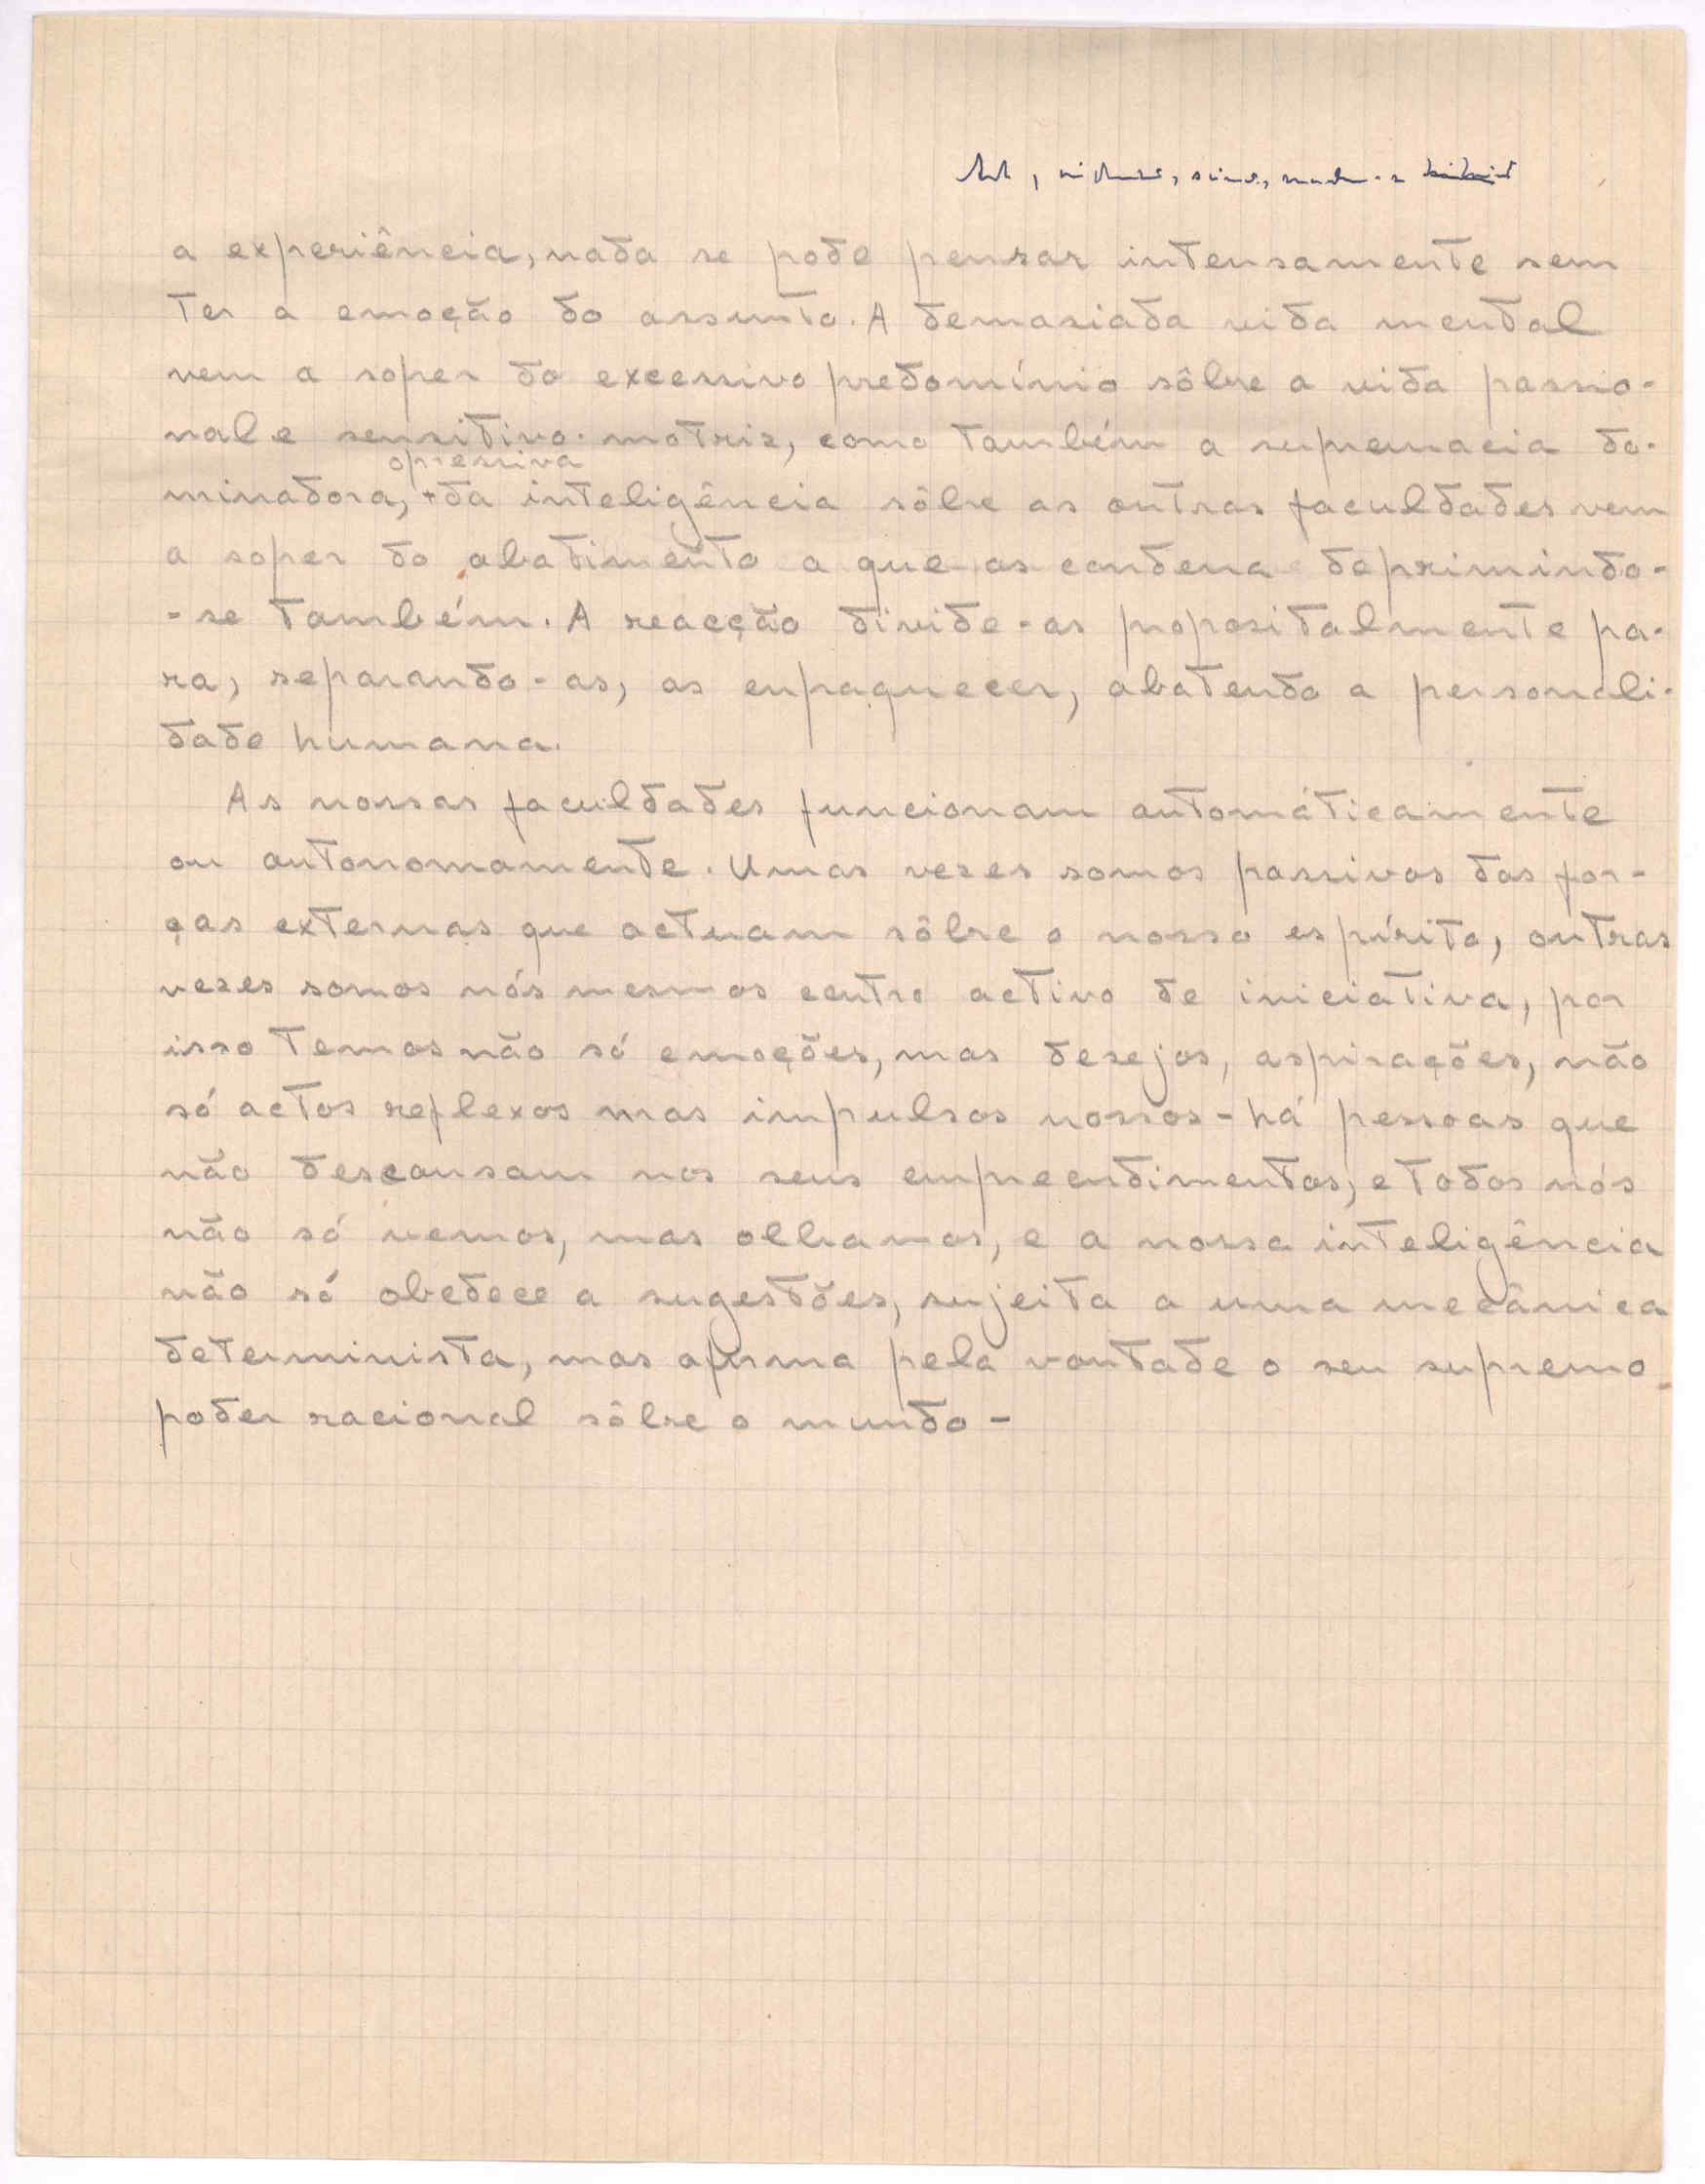 a experiência, nada se pode pensar intensamente sem
ter a emoção do assunto. A demasiada vida mental
vem a sofrer do excessivo predomínio sôbre a vida passio-
nal e sensitivo-motriz, como também a supremacia do-
opressiva
minadora, + da inteligência sôbre as outras faculdades vem
a sofrer do abatimento a que as condena deprimindo-
-se também. A reacção divide-as propositalmente pa-
ra, separando-as, as enfraquecer, abatendo a personali-
dade humana.
As nossas faculdades funcionam automáticamente
ou autonomamente. Umas vezes somos passivos das for-
ças externas que actuam sôbre o nosso espírito, outras
vezes somos nós mesmos centro activo de iniciativa, por
isso temos não só emoções, mas desejos, aspirações, não
só actos reflexos mas impulsos nossos - há pessoas que
não descansam nos seus empreendimentos, e todos nós
não só vemos, mas olhamos, e a nossa inteligência
não só obedece a sugestões, sujeita a uma mecânica
determinista, mas afirma pela vontade o seu supremo
poder racional sôbre o mundo -